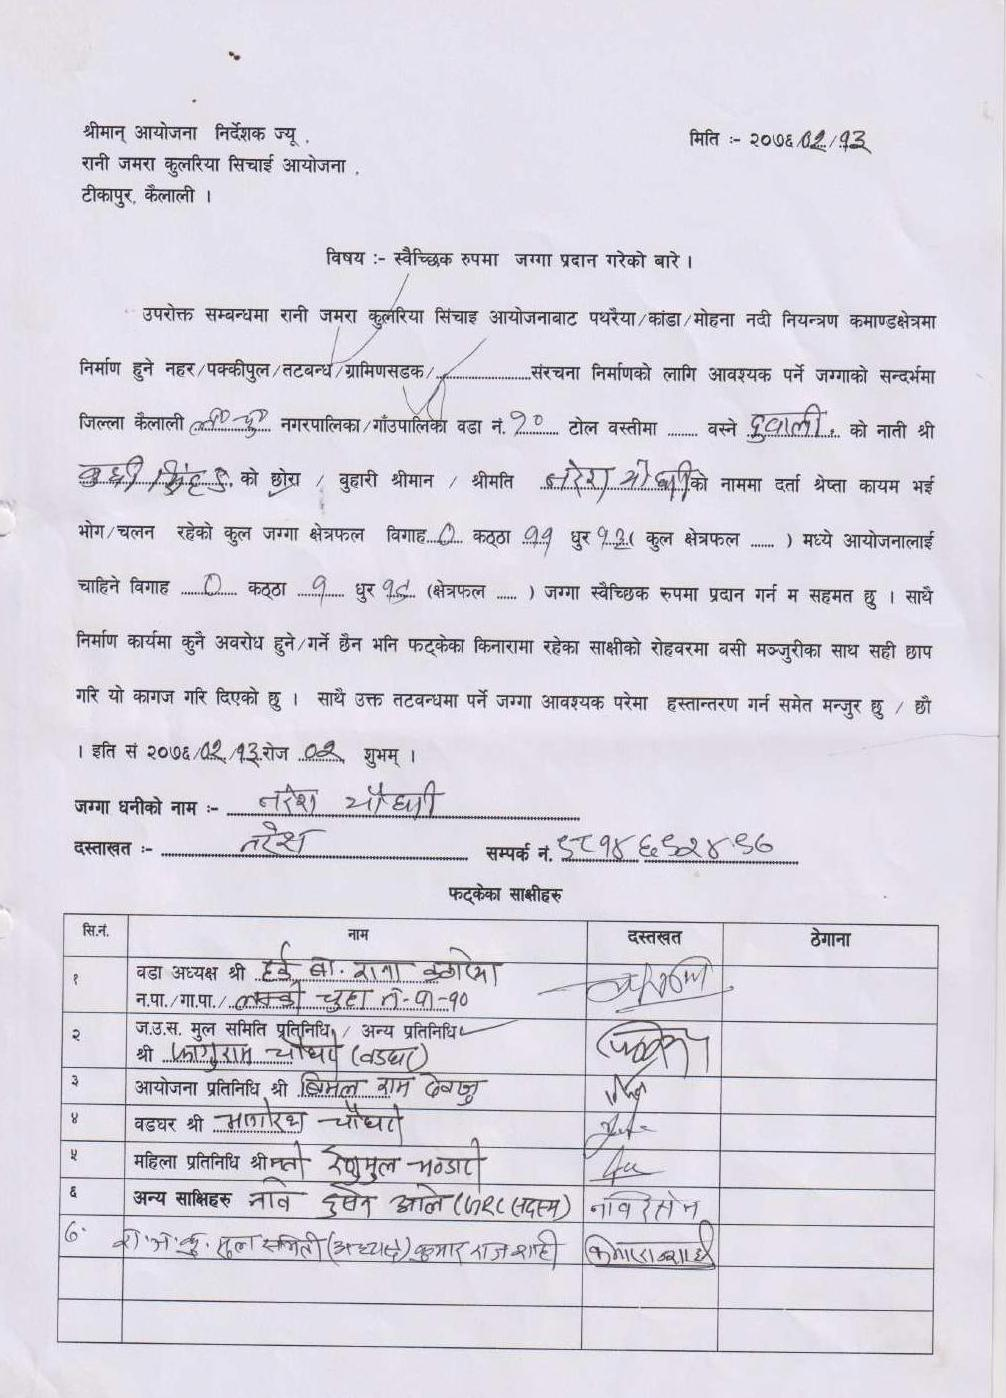 श्रीमान् आयोजना निर्देशक ज्यू ,
मिति :- २०७६/02/13
रानी जमरा कुलरिया सिचाई आयोजना ,
टीकापुर, कैलाली ।
विषय :- स्वैच्छिक रुपमा जग्गा प्रदान गरेको बारे ।
उपरोक्त सम्बन्धमा रानी जमरा कुलरिया सिंचाइ आयोजनाबाट पथरैया/कांडा/मोहना नदी नियन्त्रण कमाण्डक्षेत्रमा
निर्माण हुने नहर/पक्कीपुल/तटबन्ध/ग्रामिणसडक/......................संरचना निर्माणको लागि आवश्यक पर्ने जग्गाको सन्दर्भमा
जिल्ला कैलाली नगरपालिका/गाँउपालिका वडा नं. १० टोल वस्तीमा ........ वस्ने दुवाली. को नाती श्री
को छोरा / बुहारी श्रीमान / श्रीमति नरेश चौधरी को नाममा दर्ता श्रेष्ता कायम भई
भोग/चलन रहेको कुल जग्गा क्षेत्रफल विगाह 0 कठ्ठा ११ धुर १३ ( कुल क्षेत्रफल ...... ) मध्ये आयोजनालाई
चाहिने विगाह 0 कठ्ठा १ धुर (क्षेत्रफल ...... ) जग्गा स्वैच्छिक रुपमा प्रदान गर्न म सहमत छु । साथै
निर्माण कार्यमा कुनै अवरोध हुने/गर्ने छैन भनि फट्केका किनारामा रहेका साक्षीको रोहवरमा वसी मञ्जुरीका साथ सही छाप
गरि यो कागज गरि दिएको छु । साथै उक्त तटवन्धमा पर्ने जग्गा आवश्यक परेमा हस्तान्तरण गर्न समेत मन्जुर छु / छौ
। इति सं २०७६/02/13 रोज 02 शुभम् ।
जग्गा धनीको नाम :- नरेश चौधरी
दस्ताखत :- नरेश सम्पर्क नं. ९८१४६९२४९७
फट्केका साक्षीहरु
सि.नं. नाम दस्तखत ठेगाना
१ वडा अध्यक्ष श्री
न.पा./गा.पा./ लम्की चुहा १०
२ ज.उ.स. मुल समिति प्रतिनिधि / अन्य प्रतिनिधि
श्री फागुराम चौधरी (वडघर)
३ आयोजना प्रतिनिधि श्री बिमल राम
४ वडघर श्री चौधरी
५ महिला प्रतिनिधि श्रीमती भण्डारी
६ अन्य साक्षिहरु नवि हुसेन आले (GRC सदस्य)
७. रा.ज.कु. मुल समिती (अध्यक्ष) कुमार राज शाही